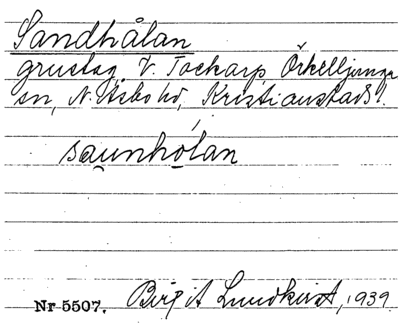 Sandhålan
grustag, V. Tockarp, Örkelljunga
sn, N. Åsbo hd, Kristianstads l.
sau̯nhó̱lan
Nr 5507. Birgit Lundkvist, 1939.